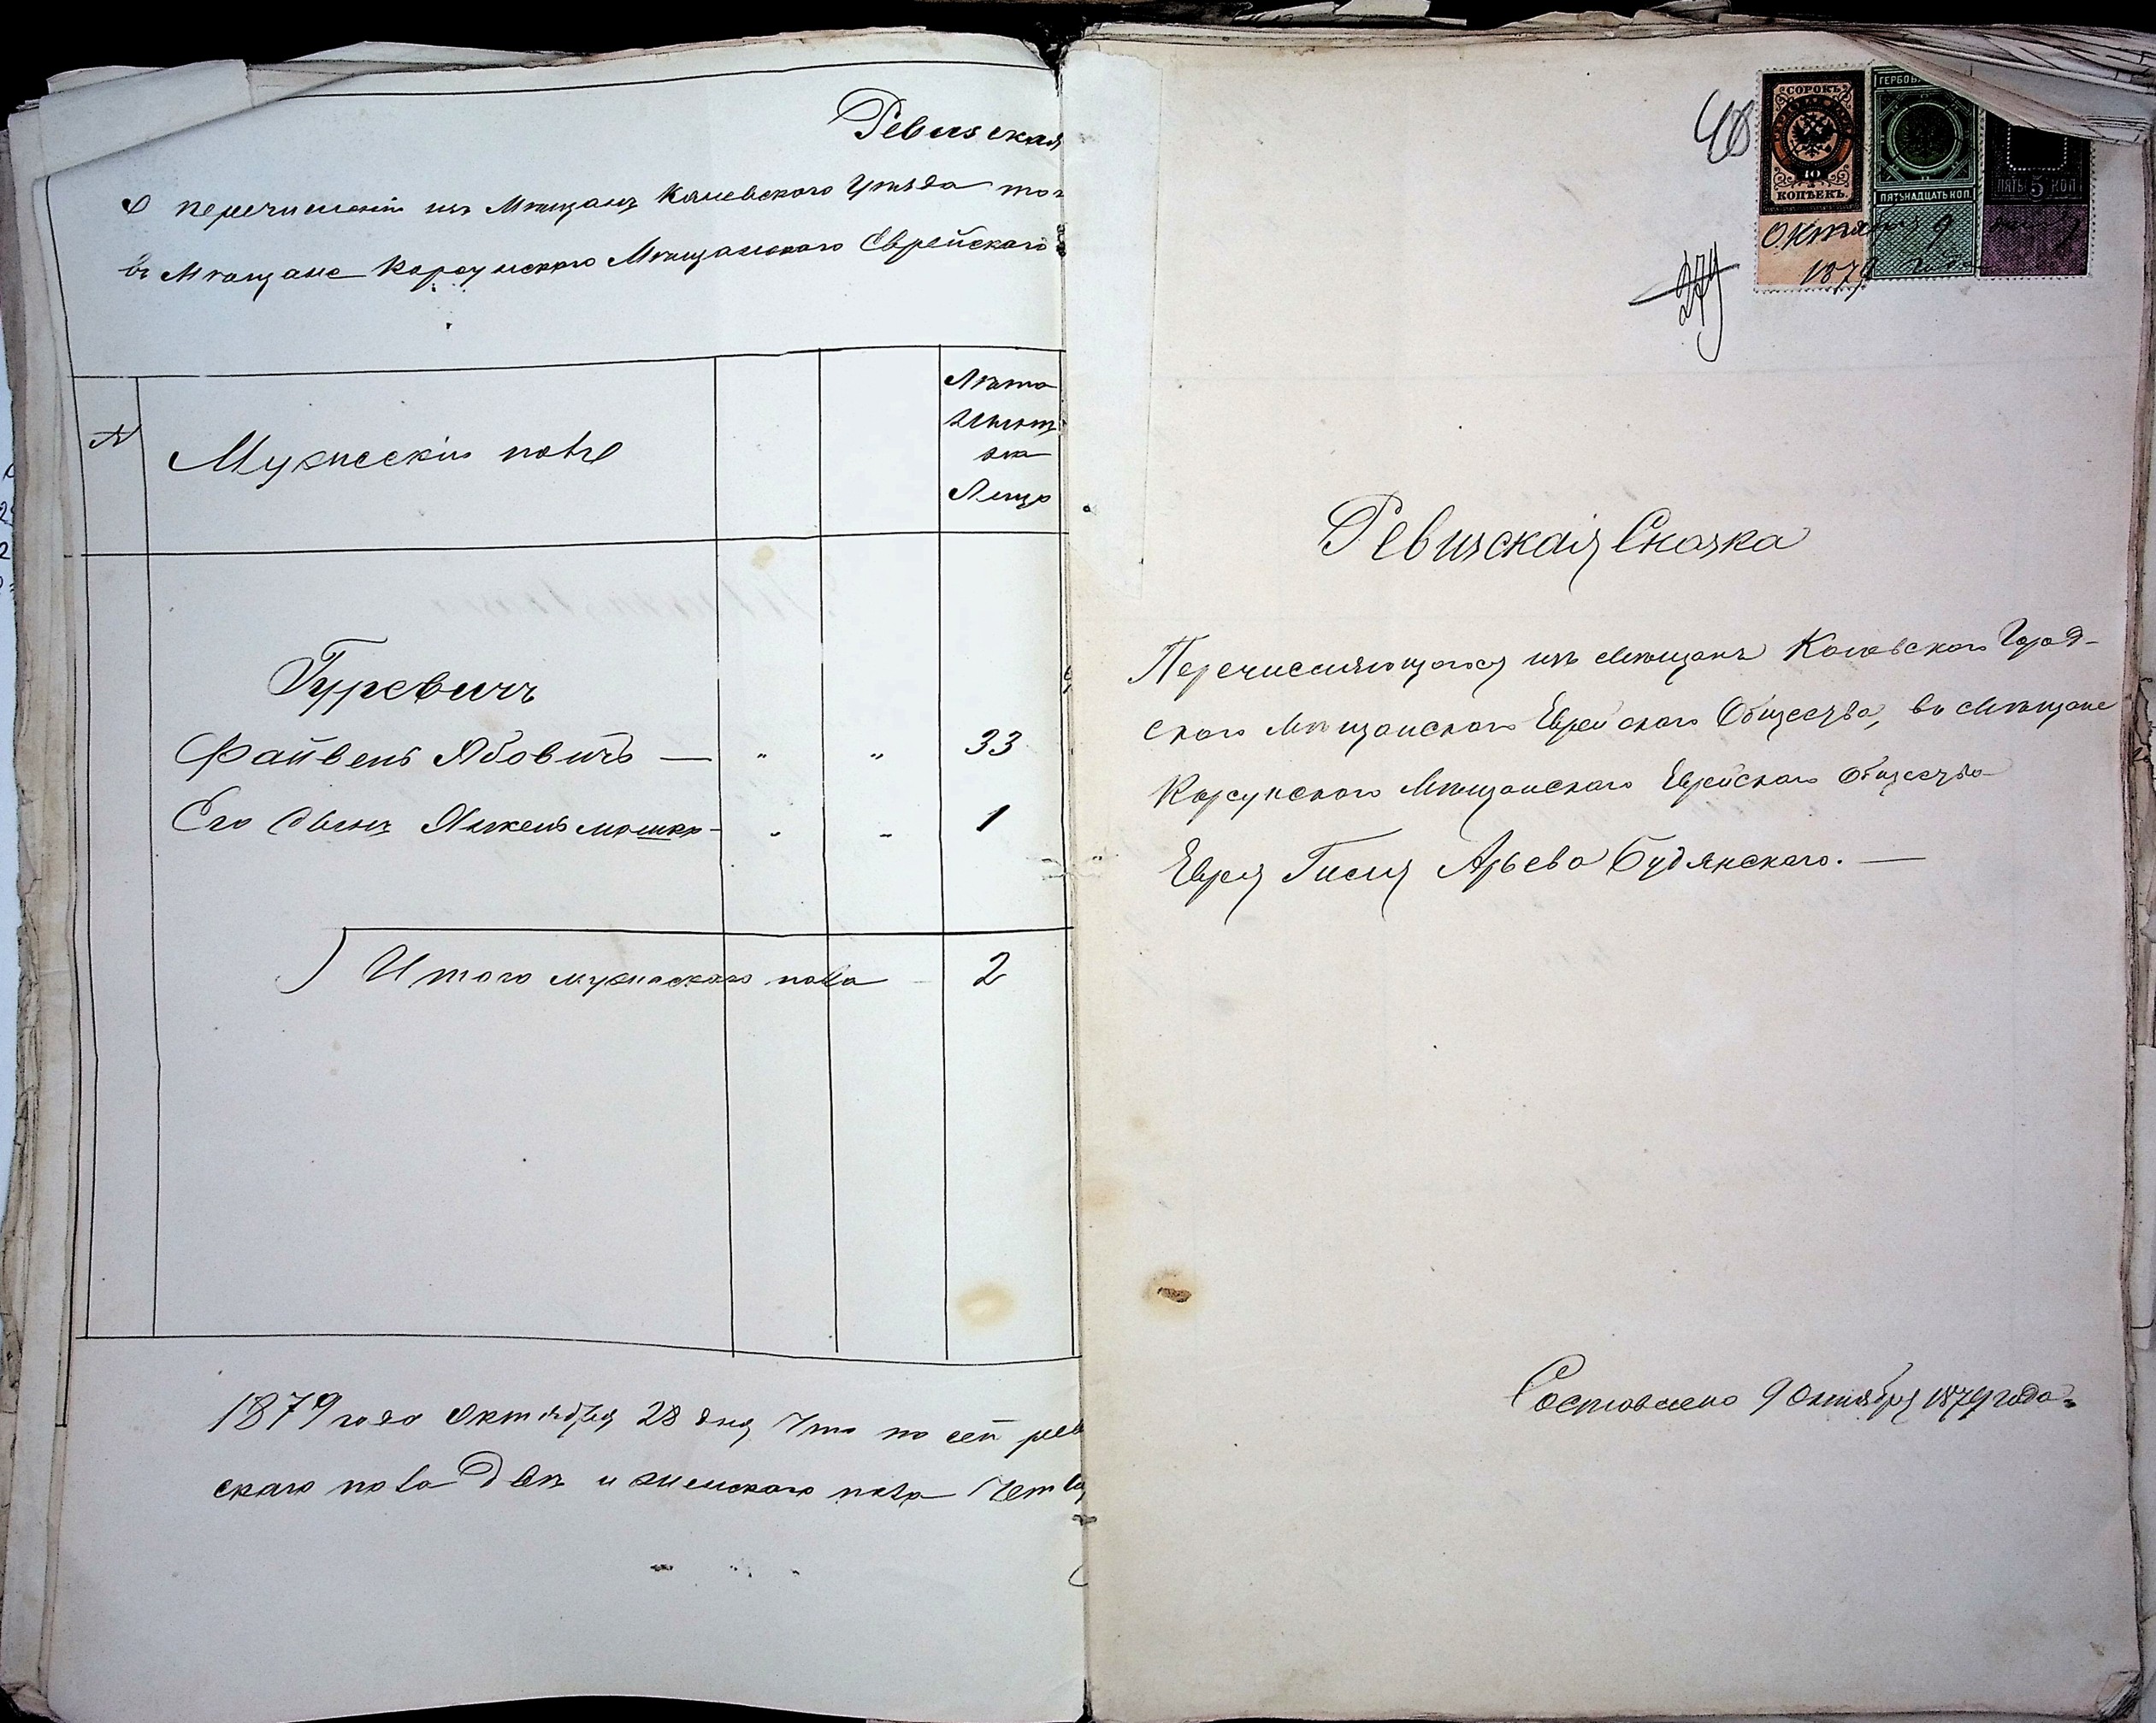 Ревизская
О перечислении изъ Мѣщанъ Каневского Уѣзда
въ Мѣщане Корсунского Мѣщанского Еврейского
№
Мужескій полъ
Лѣта
Лицо
Гуревичъ
Файвель Лбовичъ — " " 33
Его Сынъ Янкель мошко - " " 1
Итого мужескаго пола 2
1879 года Октября 28 дня Что по сей рев
скаго пола двѣ и женскаго пола Четы
40
274
СОРОКЪ
40
КОПѢЕКЪ.
ПЯТЬНАДЦАТЬ КОП
ПЯТЬ 5 КОП
Октября 9
1879 года
Ревизская Сказка
Перечисляющагося изъ Мѣщанъ Каневского Город-
ского Мѣщанского Еврейского Общества, въ Мѣщане
Корсунского Мѣщанскаго Еврейскаго Общества
Еврея Гисия Арьева Будянскаго. —
Составлено 9 Октября 1879 года.